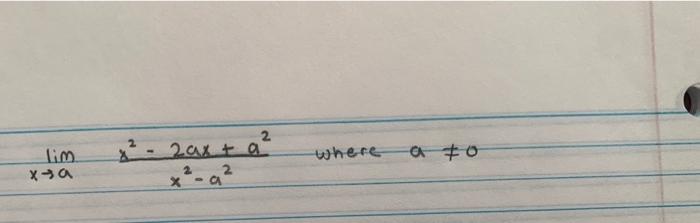 lim x→a (x² - 2ax + a²) / (x² - a²) where a ≠ 0